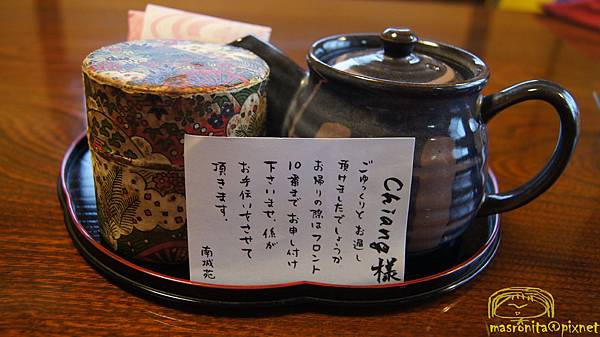 Chiang様
ごゆっくりと お過し
頂けましたでしょうか
お帰りの際はフロント
10番まで お申し付け
下さいませ、係が
お手伝いさせて
頂きます。
南城苑
masronita@pixnet